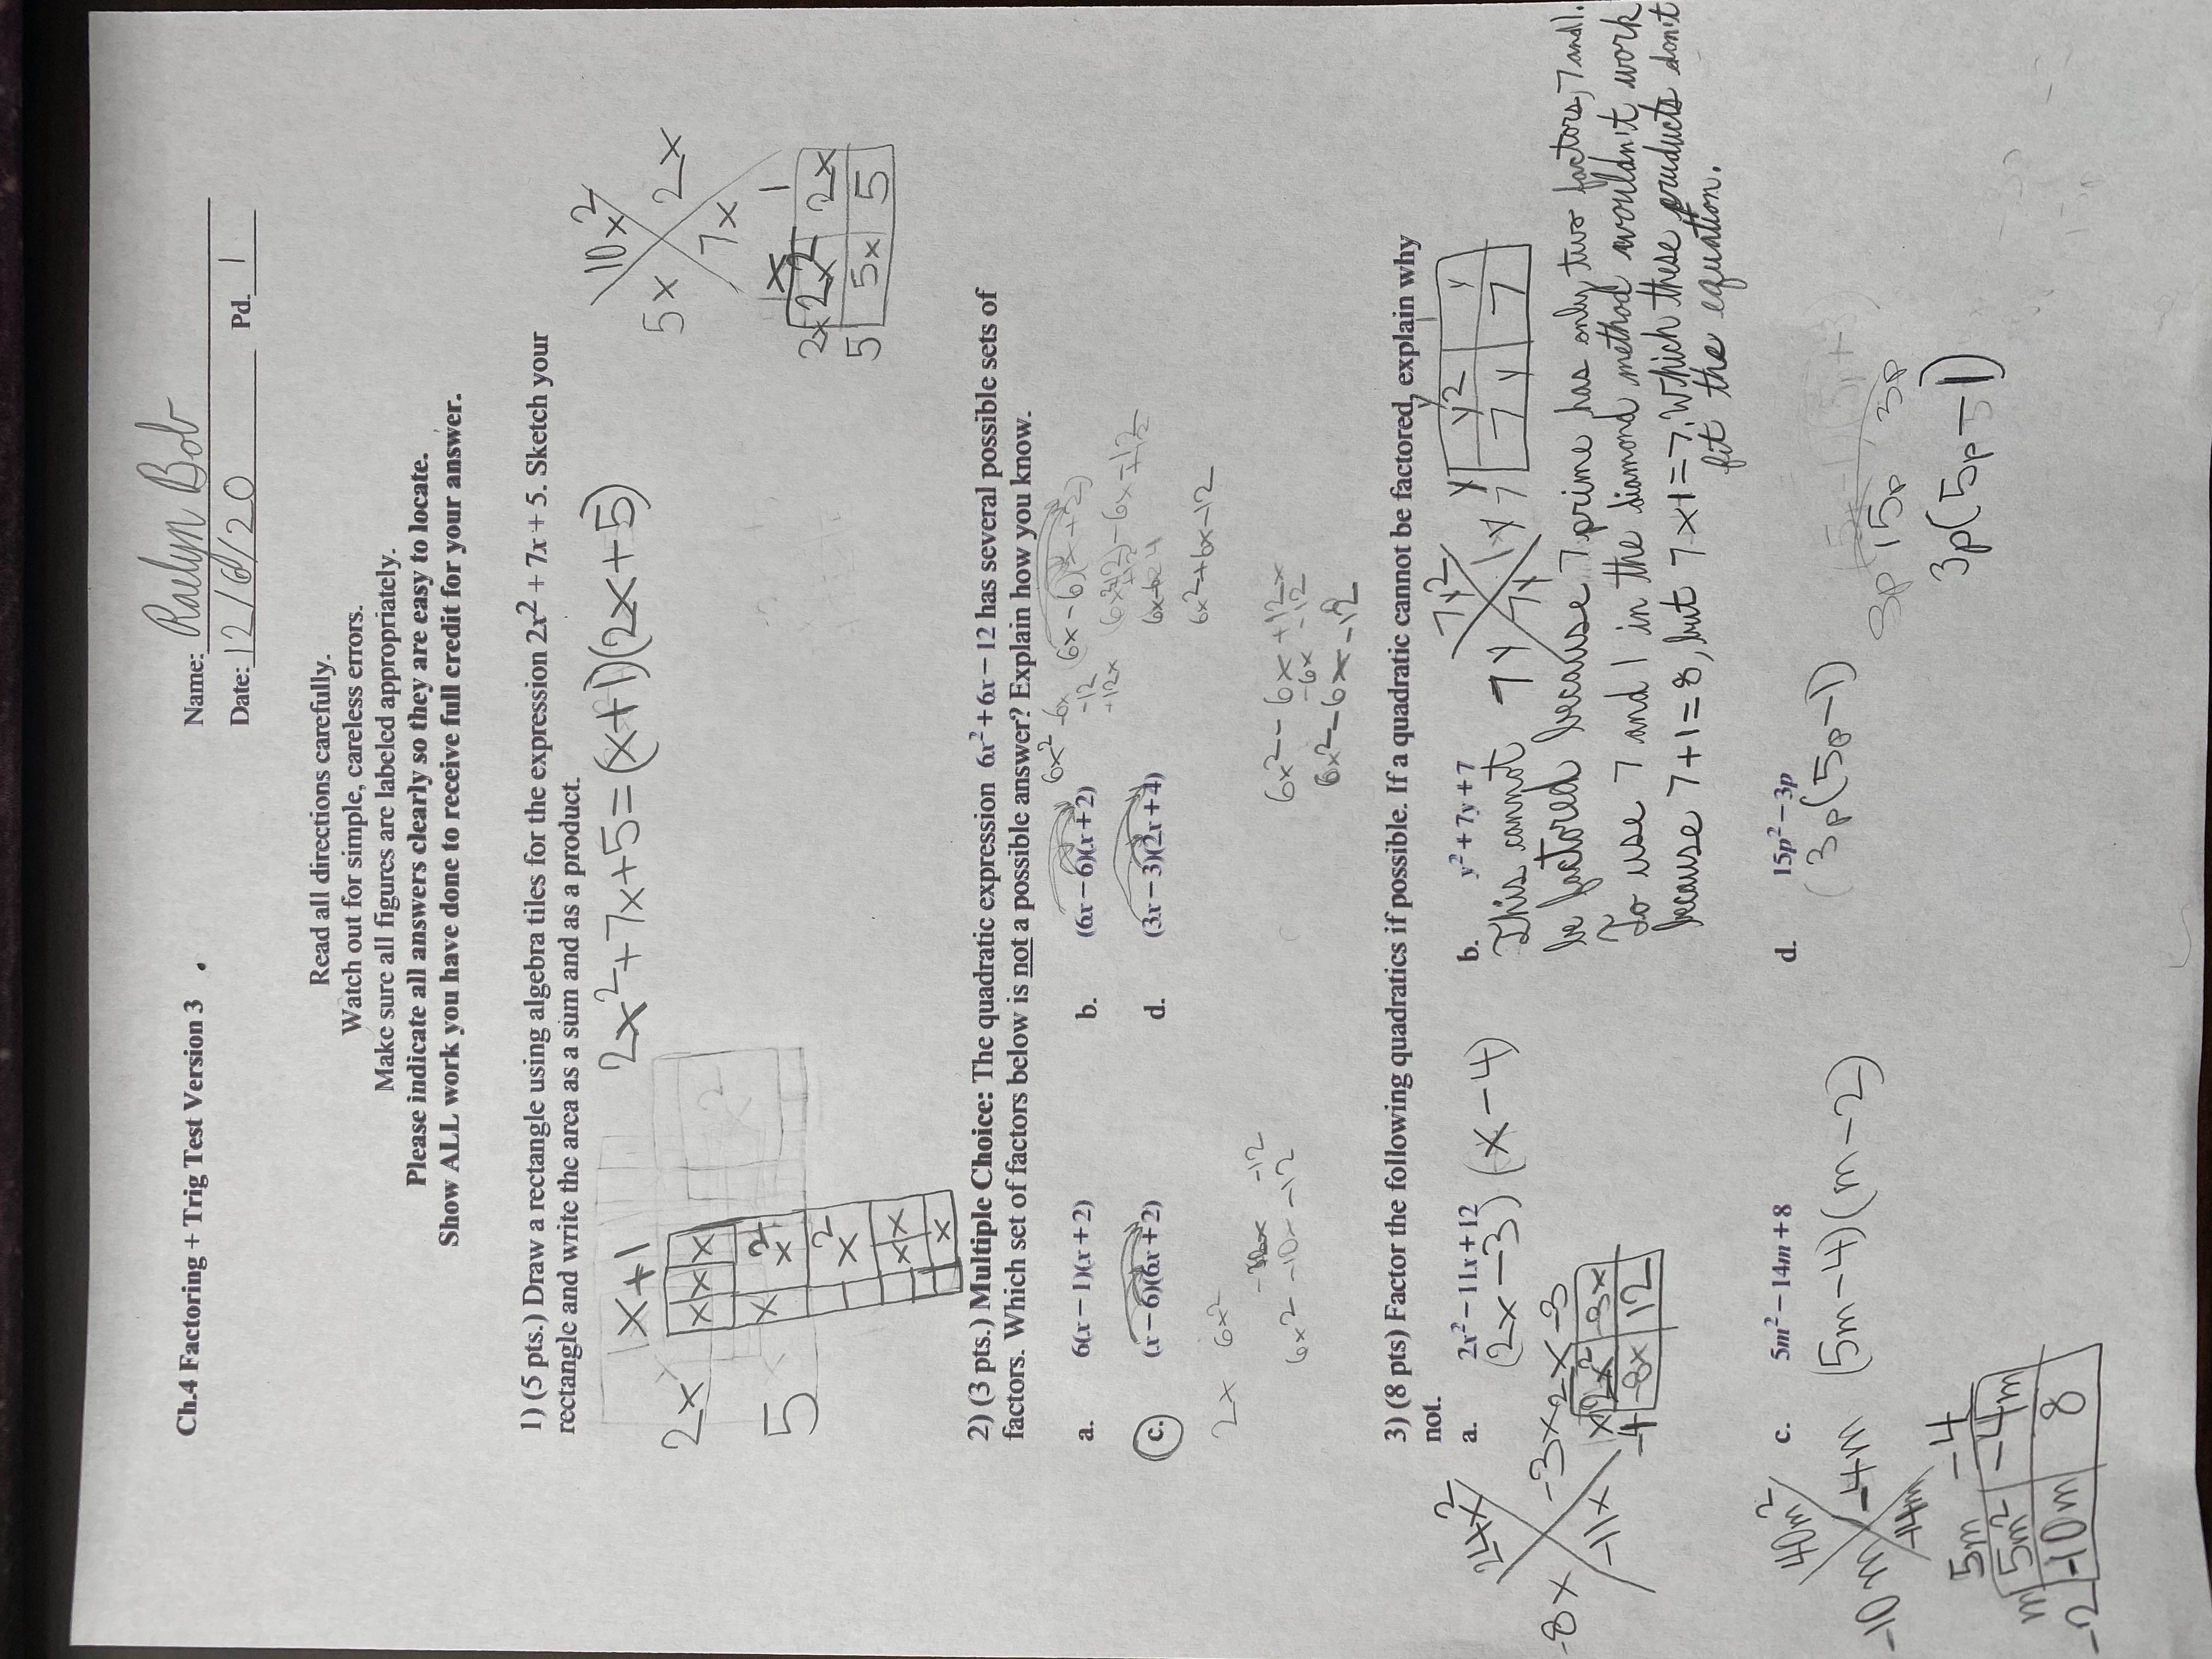 Ch.4 Factoring + Trig Test Version 3
Name: Raelyn Bob
Date: 12/6/20 Pd. 1
Read all directions carefully.
Watch out for simple, careless errors.
Make sure all figures are labeled appropriately.
Please indicate all answers clearly so they are easy to locate.
Show ALL work you have done to receive full credit for your answer.
1) (5 pts.) Draw a rectangle using algebra tiles for the expression 2x² + 7x + 5. Sketch your
rectangle and write the area as a sum and as a product.
2x²+7x+5=(x+1)(2x+5)
x+1
2x
x x x
x x²
5
x²
x x
x
10x²
5x 2x
7x
x 1
2x 2x² 2x
5 5x 5
2) (3 pts.) Multiple Choice: The quadratic expression 6x²+6x−12 has several possible sets of
factors. Which set of factors below is not a possible answer? Explain how you know.
a. 6(x−1)(x+2) b. (6x−6)(x+2)
6x² -6x
-12
+12x
(6x-6)(x+2)
c. (x−6)(6x+2) d. (3x−3)(2x+4)
6x²+6x-12
2x 6x²
-12
6x² -10x -12
6x²- 6x +12x
-6x -12
6x²-6x-12
3) (8 pts) Factor the following quadratics if possible. If a quadratic cannot be factored, explain why
not.
a. 2x²−11x+12
(2x-3) (x-4)
24x²
-8x -3x
-11x
2x -3
x 2x² -3x
-4 -8x 12
b. y²+7y+7
7y²
7y 1y
7y
y 1
y y² y
7 7y 7
This cannot
be factored because 7 prime has only two factors, 7 and 1.
To use 7 and 1 in the diamond method wouldn't work
because 7+1=8, but 7×1=7. Which these products don't
fit the equation.
c. 5m²−14m+8
(5m-4)(m-2)
40m²
-10m -4m
-14m
5m -4
m 5m² -4m
-2 -10m 8
d. 15p²−3p
3p(5p-1)
3p 15p 3p
3p(5p-1)